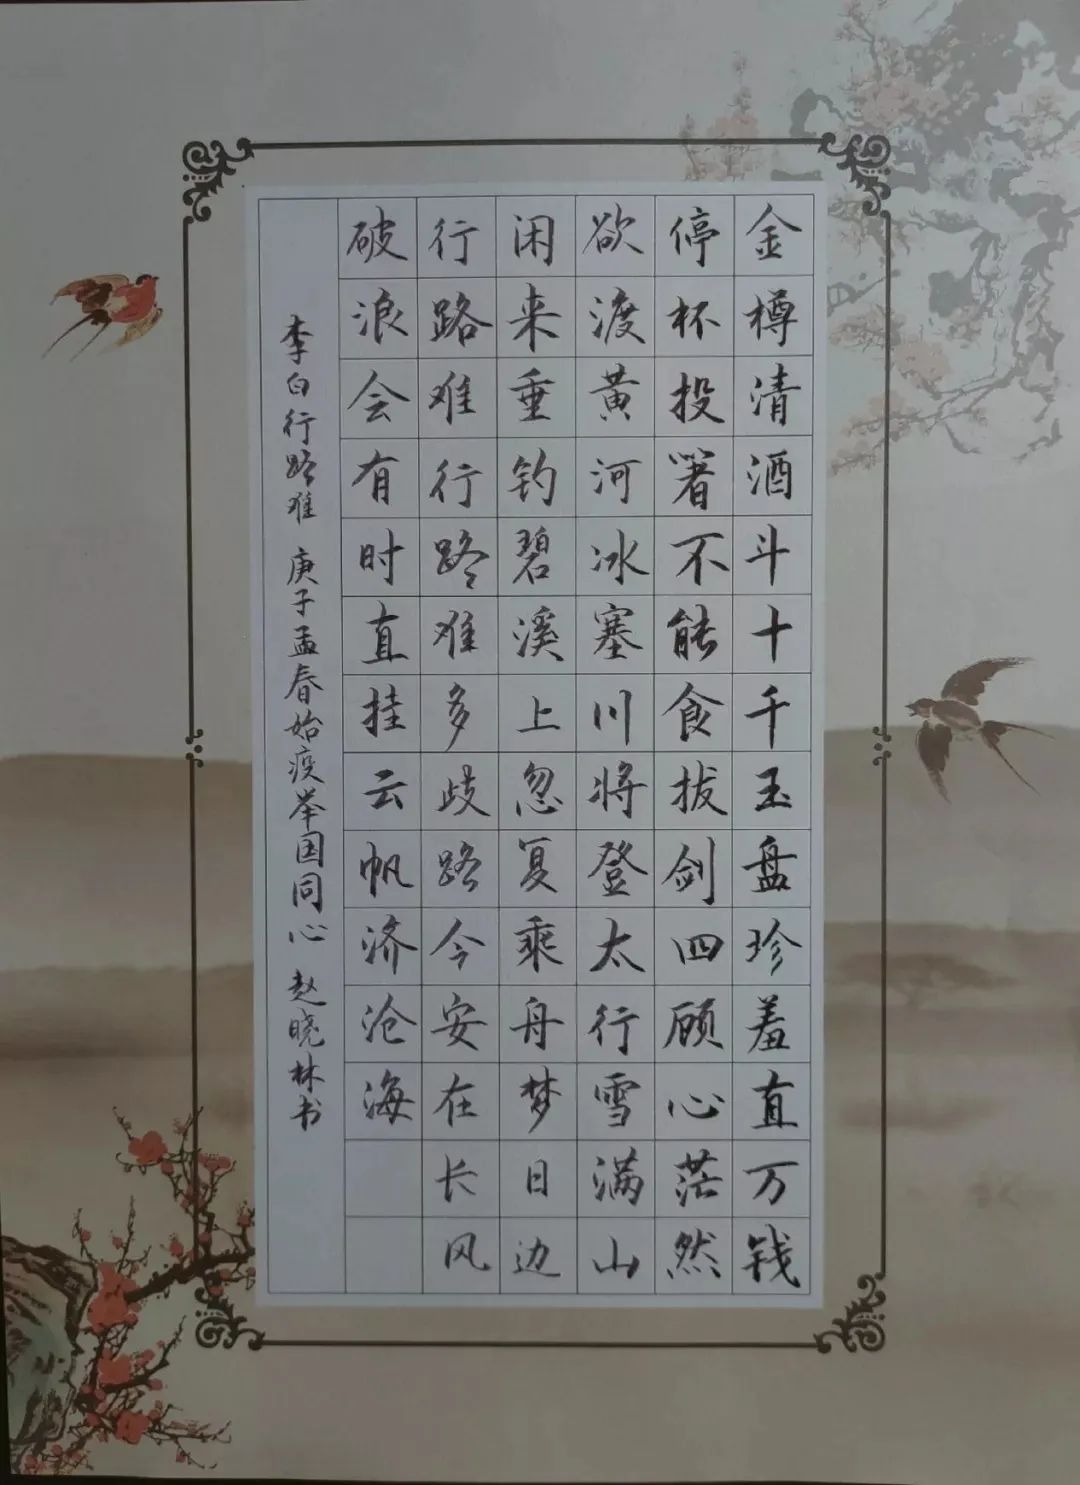 金樽清酒斗十千玉盘珍羞直万钱
停杯投箸不能食拔剑四顾心茫然
欲渡黄河冰塞川将登太行雪满山
闲来垂钓碧溪上忽复乘舟梦日边
行路难行路难多歧路今安在长风
破浪会有时直挂云帆济沧海
李白行路难 庚子孟春始疫举国同心 赵晓林书